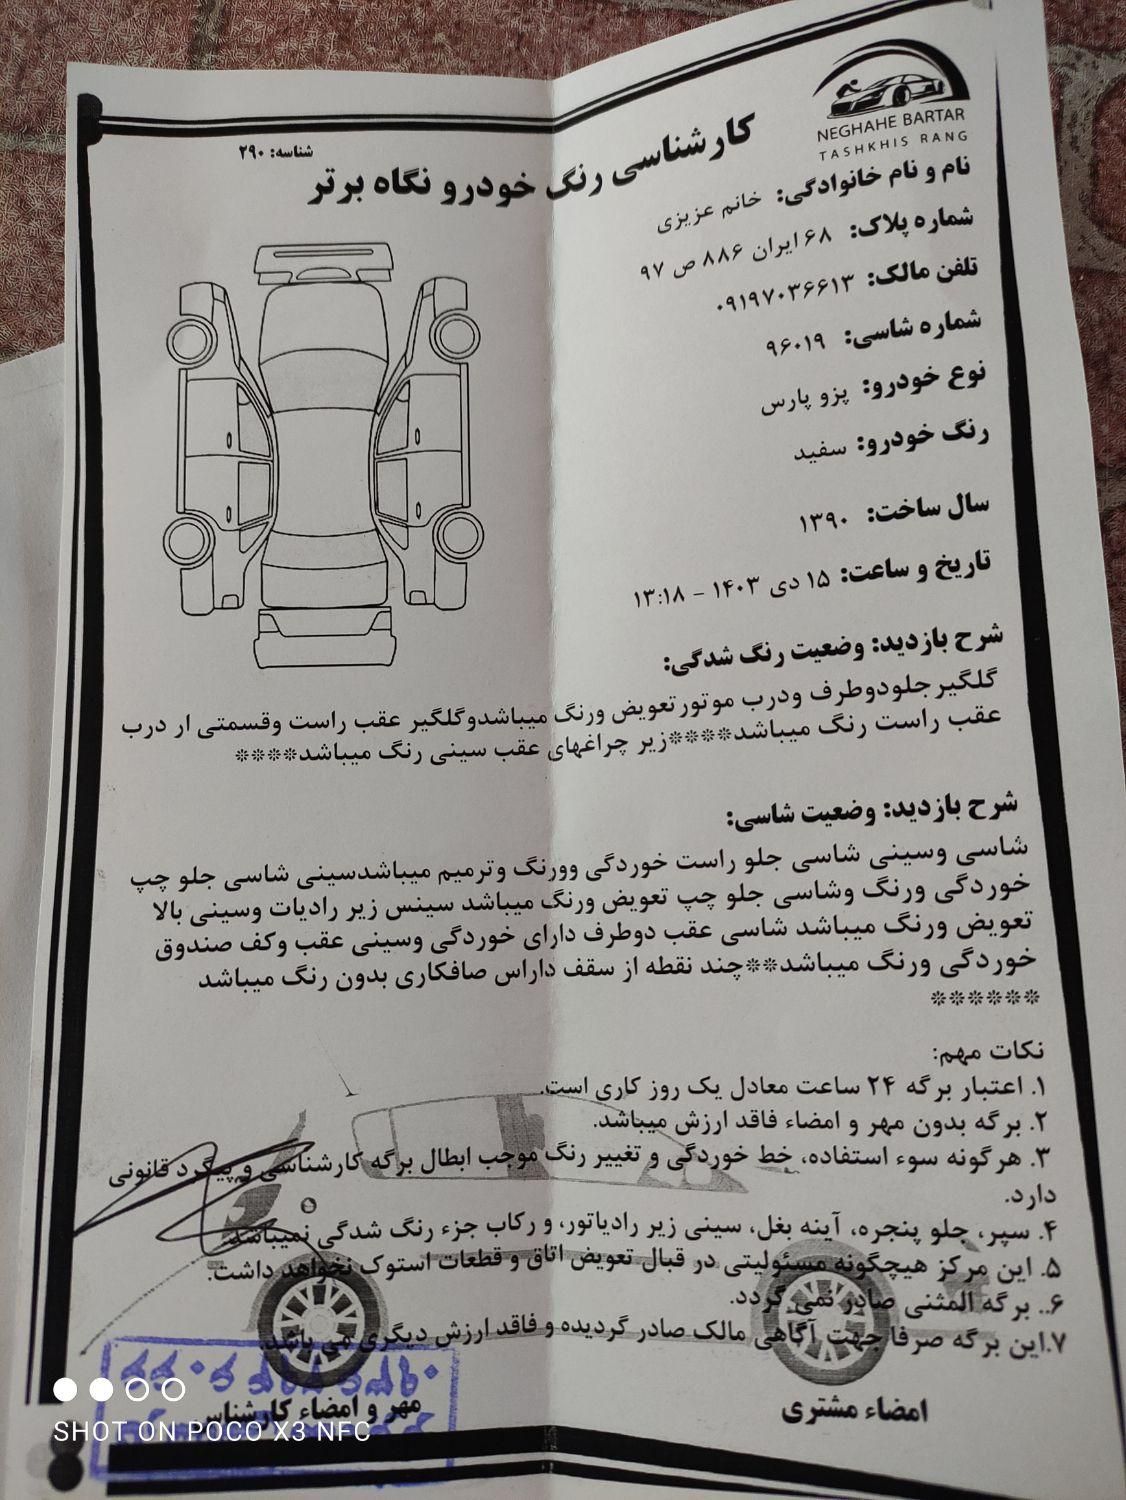 NEGHAHE BARTAR
TASHKHIS RANG
شناسه: ۲۹۰
کارشناسی رنگ خودرو نگاه برتر
نام و نام خانوادگی: خانم عزیزی
شماره پلاک: ۶۸ ایران ۸۸۶ ص ۹۷
تلفن مالک: ۰۹۱۹۷۰۳۶۶۱۳
شماره شاسی: ۹۶۰۱۹
نوع خودرو: پزو پارس
رنگ خودرو: سفید
سال ساخت: ۱۳۹۰
تاریخ و ساعت: ۱۵ دی ۱۴۰۳ - ۱۳:۱۸
شرح بازدید: وضعیت رنگ شدگی:
گلگیرجلودوطرف ودرب موتورتعویض ورنگ میباشدوگلگیر عقب راست وقسمتی ار درب
عقب راست رنگ میباشد****زیر چراغهای عقب سینی رنگ میباشد****
شرح بازدید: وضعیت شاسی:
شاسی وسینی شاسی جلو راست خوردگی وورنگ وترمیم میباشدسینی شاسی جلو چپ
خوردگی ورنگ وشاسی جلو چپ تعویض ورنگ میباشد سینس زیر رادیات وسینی بالا
تعویض ورنگ میباشد شاسی عقب دوطرف دارای خوردگی وسینی عقب وکف صندوق
خوردگی ورنگ میباشد**چند نقطه از سقف داراس صافکاری بدون رنگ میباشد
******
نکات مهم:
۱. اعتبار برگه ۲۴ ساعت معادل یک روز کاری است.
۲. برگه بدون مهر و امضاء فاقد ارزش میباشد.
۳. هرگونه سوء استفاده، خط خوردگی و تغییر رنگ موجب ابطال برگه کارشناسی و پیگرد قانونی
دارد.
۴. سپر، جلو پنجره، آینه بغل، سینی زیر رادیاتور، و رکاب جزء رنگ شدگی نمیباشد.
۵. این مرکز هیچگونه مسئولیتی در قبال تعویض اتاق و قطعات استوک نخواهد داشت.
۶.. برگه المثنی صادر نمی گردد.
۷.این برگه صرفا جهت آگاهی مالک صادر گردیده و فاقد ارزش دیگری می باشد.
امضاء مشتری
مهر و امضاء کارشناس
SHOT ON POCO X3 NFC